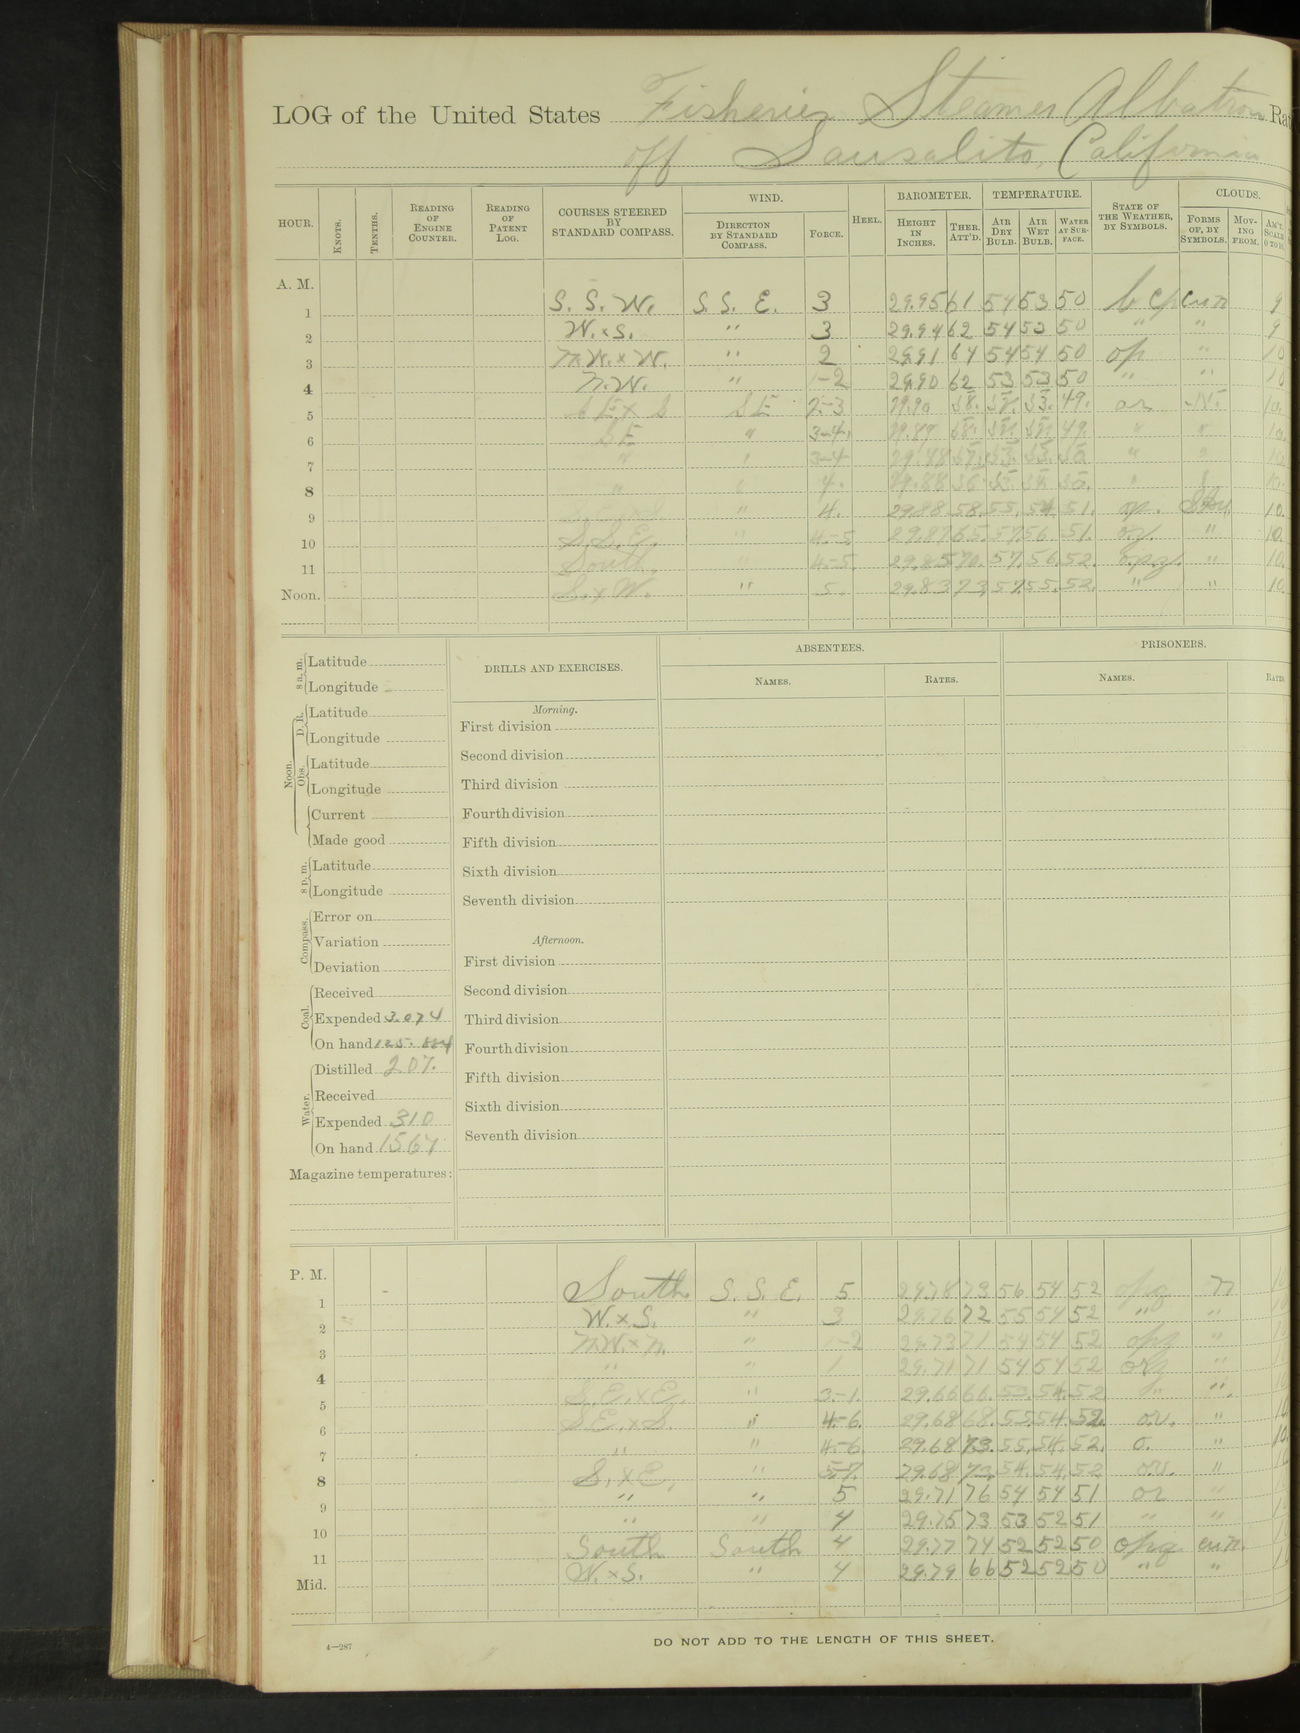 LOG of the United States Fisheries Steamer Albatross Ra
off Sausalito, California
HOUR. KNOTS. TENTHS. READING OF ENGINE COUNTER. READING OF PATENT LOG. COURSES STEERED BY STANDARD COMPASS. WIND. DIRECTION BY STANDARD COMPASS. FORCE. HEEL. BAROMETER. HEIGHT IN INCHES. THER. ATT'D. TEMPERATURE. AIR DRY BULB. AIR WET BULB. WATER AT SURFACE. STATE OF THE WEATHER, BY SYMBOLS. CLOUDS. FORMS OF, BY SYMBOLS. MOVING FROM. AM'T. SCALE 0 TO 10.
A. M.
1 S. S. W. S. S. E. 3 29.95 61 54 53 50 b cp cu n 9
2 W. x S. " 3 29.94 62 54 53 50 " " 9
3 N. W. x W. " 2 29.91 64 54 54 50 op " 10
4 N. W. " 1-2 29.90 62 53 53 50 " " 10
5 S E x S S E 2-3 29.90 49. or 10.
6 S E " 3-4. 29.89 49. " " 10.
7 " 3-4 " 10
8 " 4. 29.88 " 10.
9 " 4. 29.88 58. 55. 54. 51. op. 10.
10 S. S. E. " 4-5 29.87 65. 57. 56. 51. " 10.
11 South. " 4-5. 29.85 70. 57. 56. 52. " 10.
Noon. S. x W. " 5. 29.83 73. 57. 55. 52. " " 10.
8 a. m. Latitude
Longitude
Noon. D. R. Latitude
Longitude
Obs. Latitude
Longitude
Current
Made good
8 p. m. Latitude
Longitude
Compass. Error on
Variation
Deviation
Coal. Received
Expended 3.074
On hand 125.884
Water. Distilled 207.
Received
Expended 310
On hand 1567
Magazine temperatures:
DRILLS AND EXERCISES.
Morning.
First division
Second division
Third division
Fourth division
Fifth division
Sixth division
Seventh division
Afternoon.
First division
Second division
Third division
Fourth division
Fifth division
Sixth division
Seventh division
ABSENTEES.
NAMES. RATES.
PRISONERS.
NAMES. RATES
P. M.
1 South S. S. E. 5 29.78 73 56 54 52 opq n 10
2 W. x S. " 3 29.76 72 55 54 52 " " 10
3 N. W. x N. " 1-2 29.73 71 54 54 52 opq "
4 " " 1 29.71 71 54 54 52 orq "
5 S. E. x E. " 3-1. 29.66 66. 53. 54. 52 ".
6 S E. x S. " 4-6. 29.68 68. 55. 54. 52. o.r. " 10
7 " " 4-6. 29.68 73. 55. 54. 52. o. " 10.
8 S. x E. " 5-7. 29.68 72. 54. 54. 52 o.r. "
9 " " 5 29.71 76 54 54 51 or "
10 " " 4 29.75 73 53 52 51 " "
11 South South 4 29.77 74 52 52 50 opq cu n.
Mid. W. x S. " 4 29.79 66 52 52 50 " "
4—287
DO NOT ADD TO THE LENGTH OF THIS SHEET.